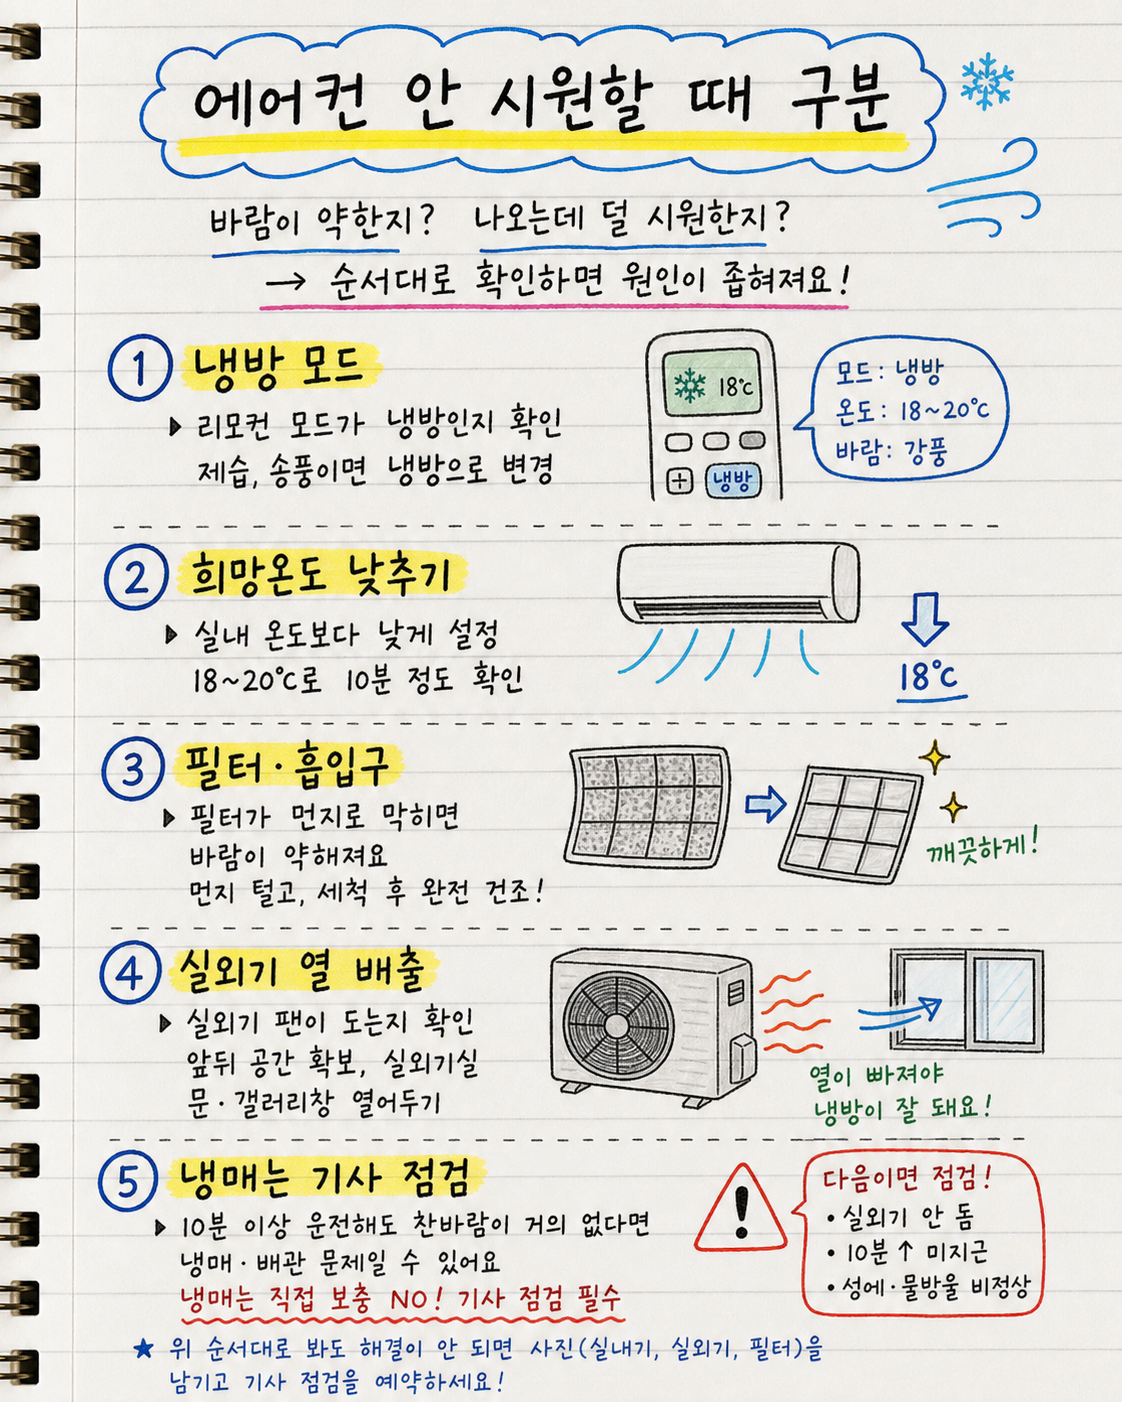 에어컨 안 시원할 때 구분
바람이 약한지? 나오는데 덜 시원한지?
→ 순서대로 확인하면 원인이 좁혀져요!
1 냉방 모드
▶ 리모컨 모드가 냉방인지 확인
제습, 송풍이면 냉방으로 변경
18℃
+ 냉방
모드: 냉방
온도: 18~20℃
바람: 강풍
2 희망온도 낮추기
▶ 실내 온도보다 낮게 설정
18~20℃로 10분 정도 확인
18℃
3 필터·흡입구
▶ 필터가 먼지로 막히면
바람이 약해져요
먼지 털고, 세척 후 완전 건조!
깨끗하게!
4 실외기 열 배출
▶ 실외기 팬이 도는지 확인
앞뒤 공간 확보, 실외기실
문·갤러리창 열어두기
열이 빠져야
냉방이 잘 돼요!
5 냉매는 기사 점검
▶ 10분 이상 운전해도 찬바람이 거의 없다면
냉매·배관 문제일 수 있어요
냉매는 직접 보충 NO! 기사 점검 필수
!
다음이면 점검!
• 실외기 안 돔
• 10분↑ 미지근
• 성에·물방울 비정상
★ 위 순서대로 봐도 해결이 안 되면 사진(실내기, 실외기, 필터)을
남기고 기사 점검을 예약하세요!